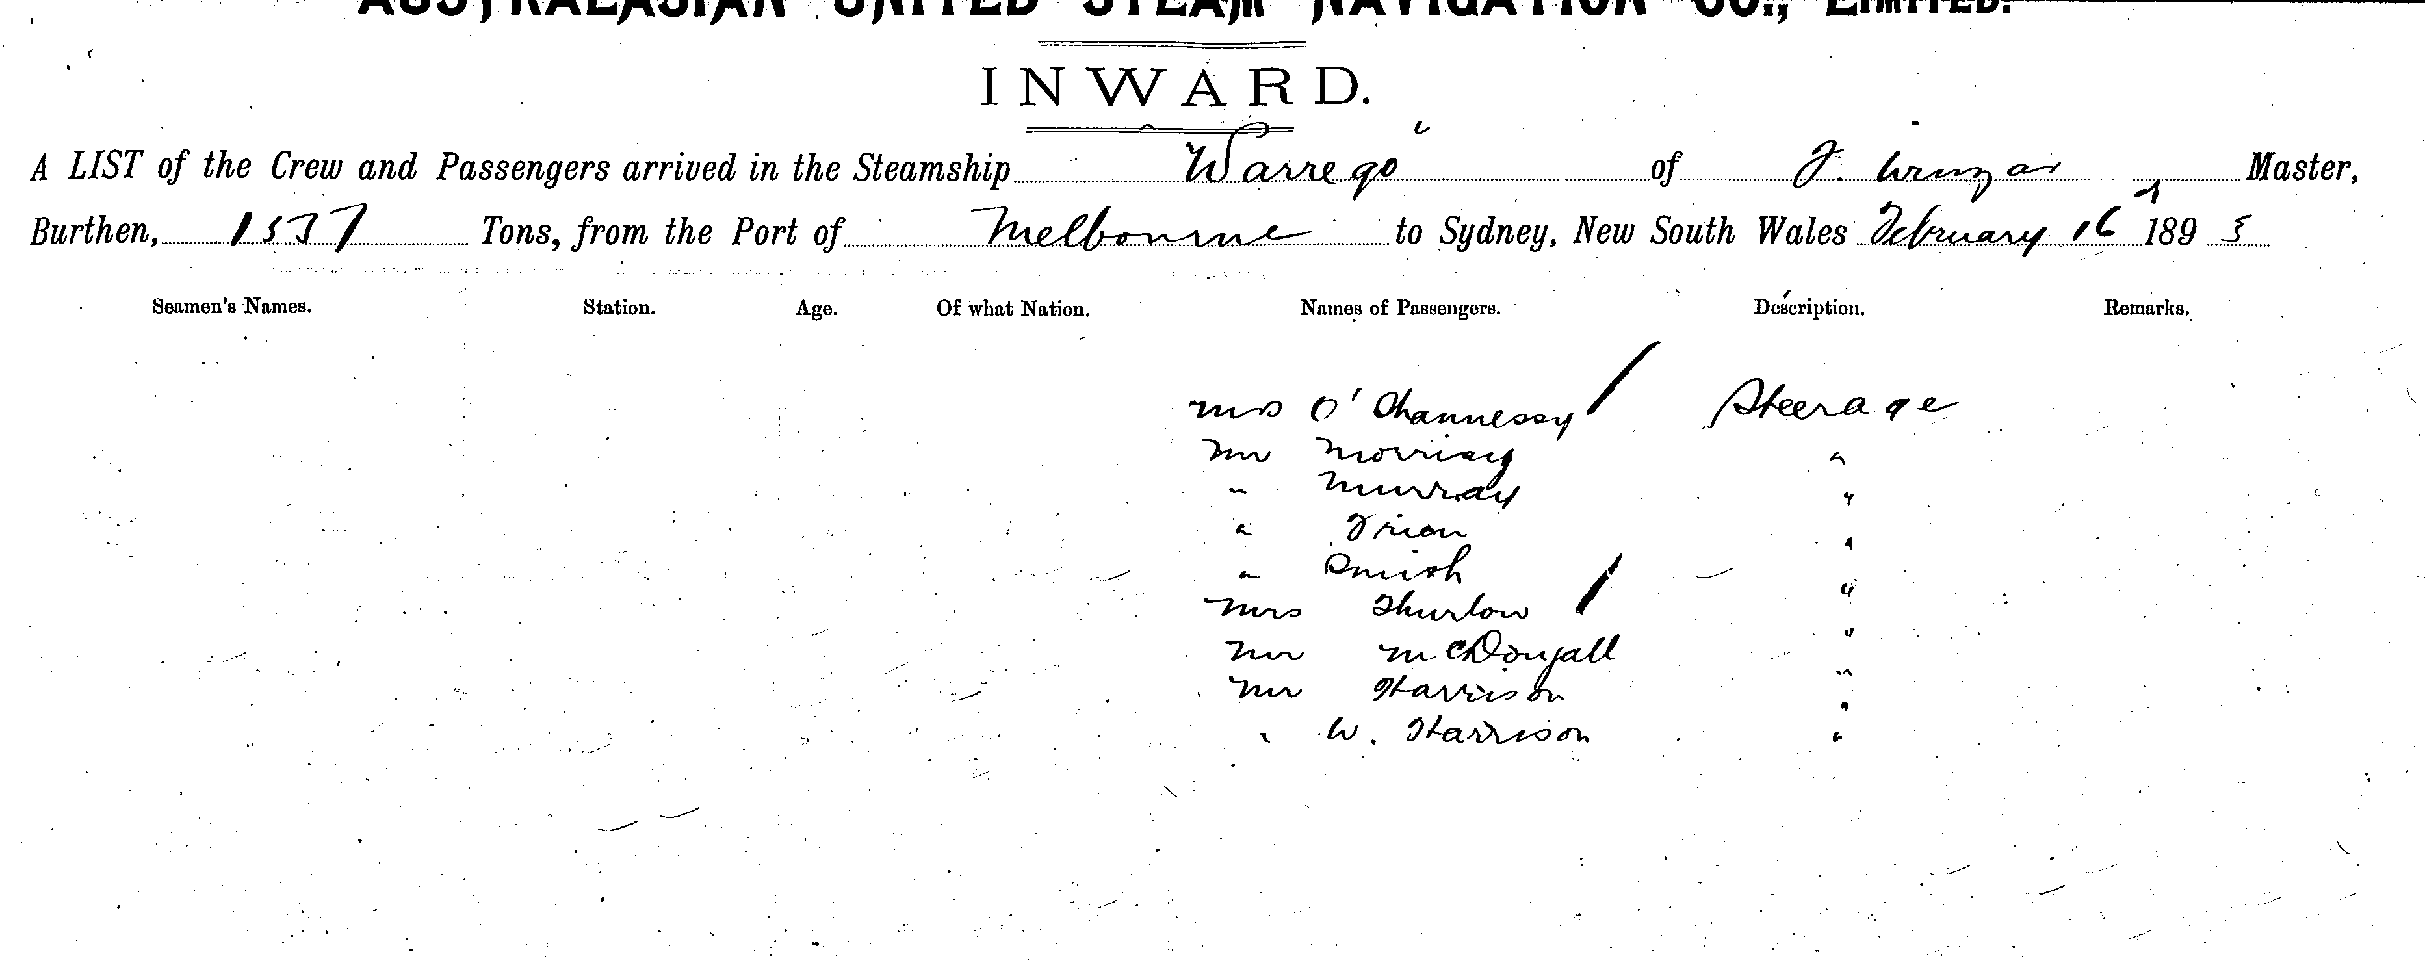 AUSTRALASIAN UNITED STEAM NAVIGATION CO., LIMITED.
INWARD.
A LIST of the Crew and Passengers arrived in the Steamship "Warrego" of J. Master,
Burthen, 1537 Tons, from the Port of Melbourne to Sydney, New South Wales February 16 1893
Seamen's Names. Station. Age. Of what Nation. Names of Passengers. Description. Remarks.
Mrs O'Shannessy Steerage
Mr Morrisey "
" Murray "
" "
" Smith "
Mrs Thurlow "
Mr McDougall "
Mr Harrison "
" W. Harrison "